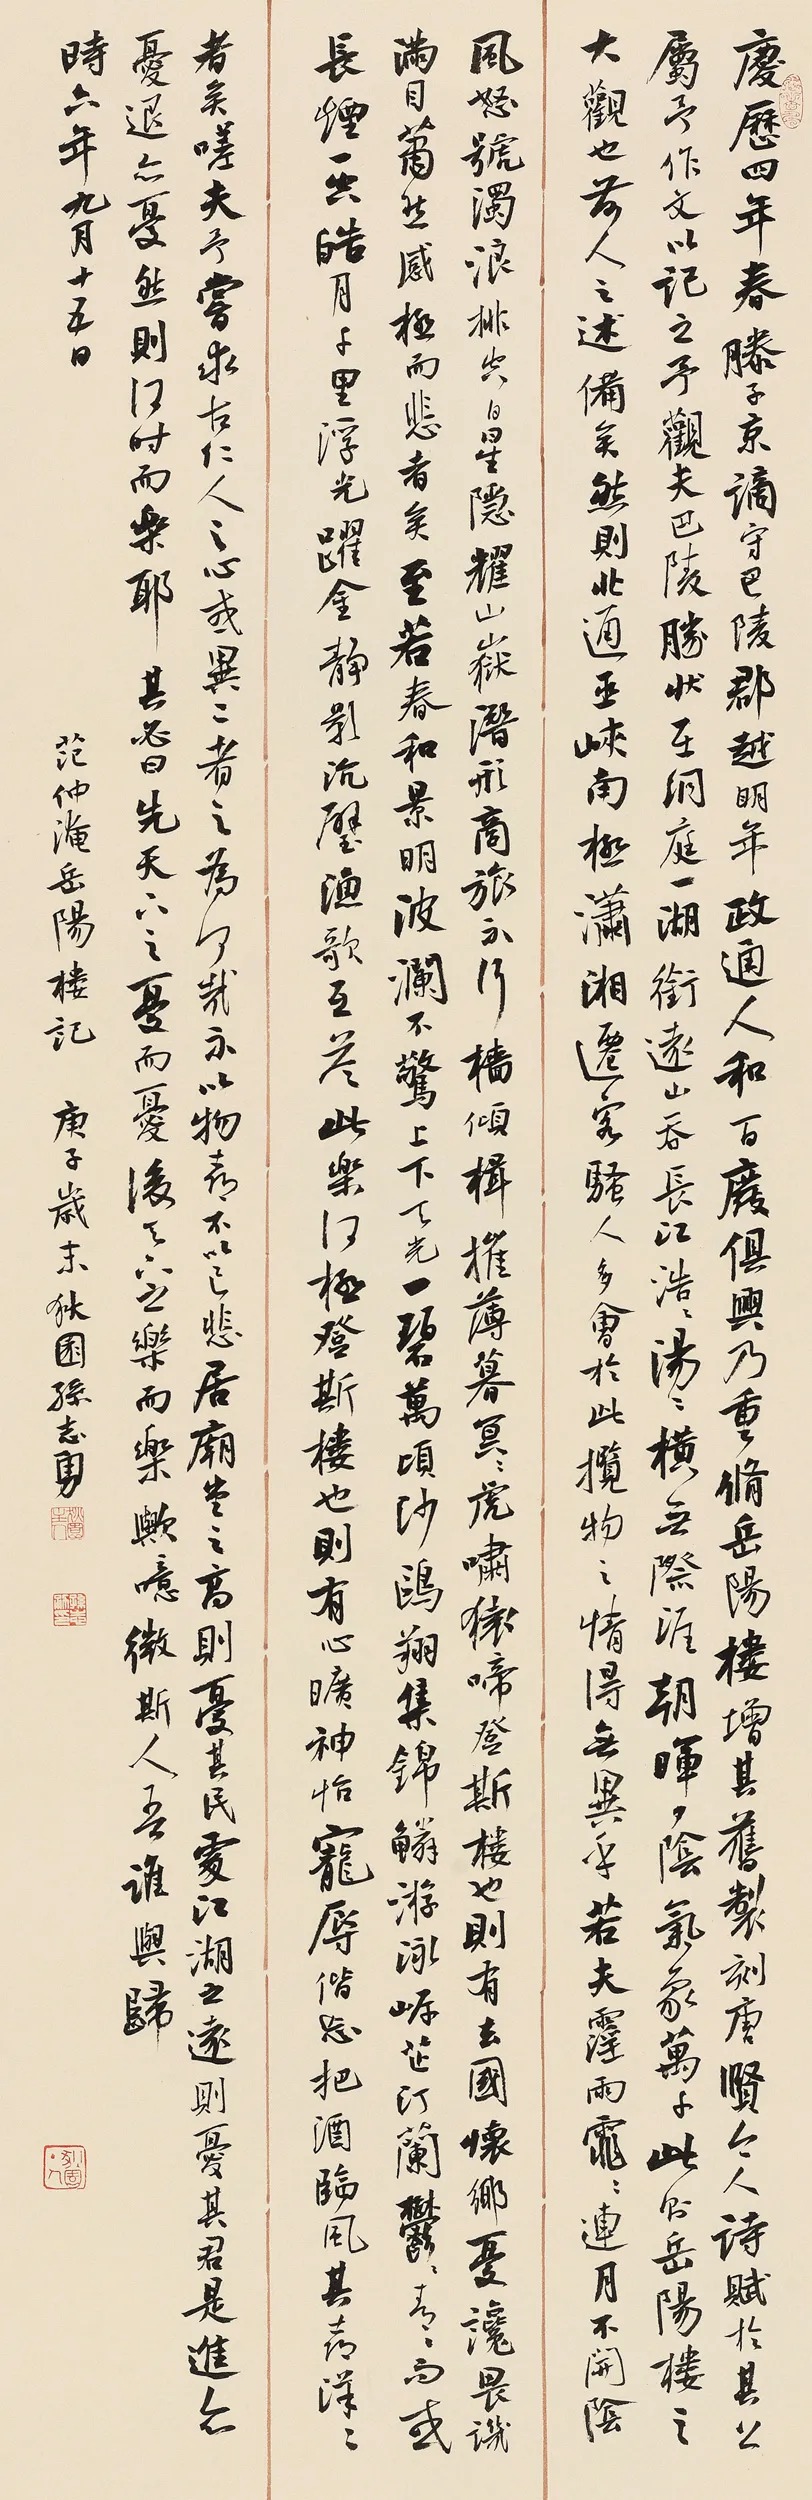 慶歷四年春滕子京謫守巴陵郡越明年政通人和百廢俱興乃重脩岳陽樓增其舊製刻唐賢今人詩賦於其上
屬予作文以記之予觀夫巴陵勝狀在洞庭一湖銜遠山吞長江浩〻湯〻橫無際涯朝暉夕陰氣象萬千此則岳陽樓之
大觀也前人之述備矣然則北通巫峽南極瀟湘遷客騷人多會於此攬物之情得無異乎若夫霪雨霏〻連月不開陰
風怒號濁浪排空日星隱耀山嶽潛形商旅不行檣傾楫摧薄暮冥〻虎嘯猿啼登斯樓也則有去國懷鄉憂讒畏譏
滿目蕭然感極而悲者矣至若春和景明波瀾不驚上下天光一碧萬頃沙鷗翔集錦鱗游泳岸芷汀蘭鬱〻青〻而或
長煙一空皓月千里浮光躍金靜影沉璧漁歌互答此樂何極登斯樓也則有心曠神怡寵辱偕忘把酒臨風其喜洋〻
者矣嗟夫予嘗求古仁人之心或異二者之為何哉不以物喜不以己悲居廟堂之高則憂其民處江湖之遠則憂其君是進亦
憂退亦憂然則何時而樂耶其必曰先天下之憂而憂後天下之樂而樂歟噫微斯人吾誰與歸
時六年九月十五日
范仲淹岳陽樓記 庚子歲末狄園孫志勇